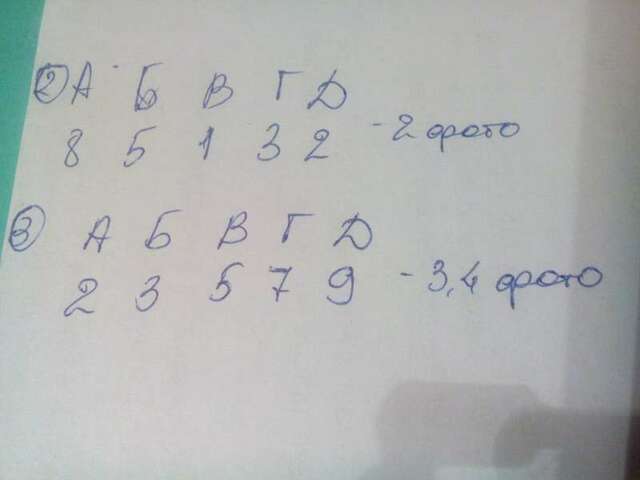 ② А Б В Г Д
8 5 1 3 2 - 2 фото
③ А Б В Г Д
2 3 5 7 9 - 3,4 фото